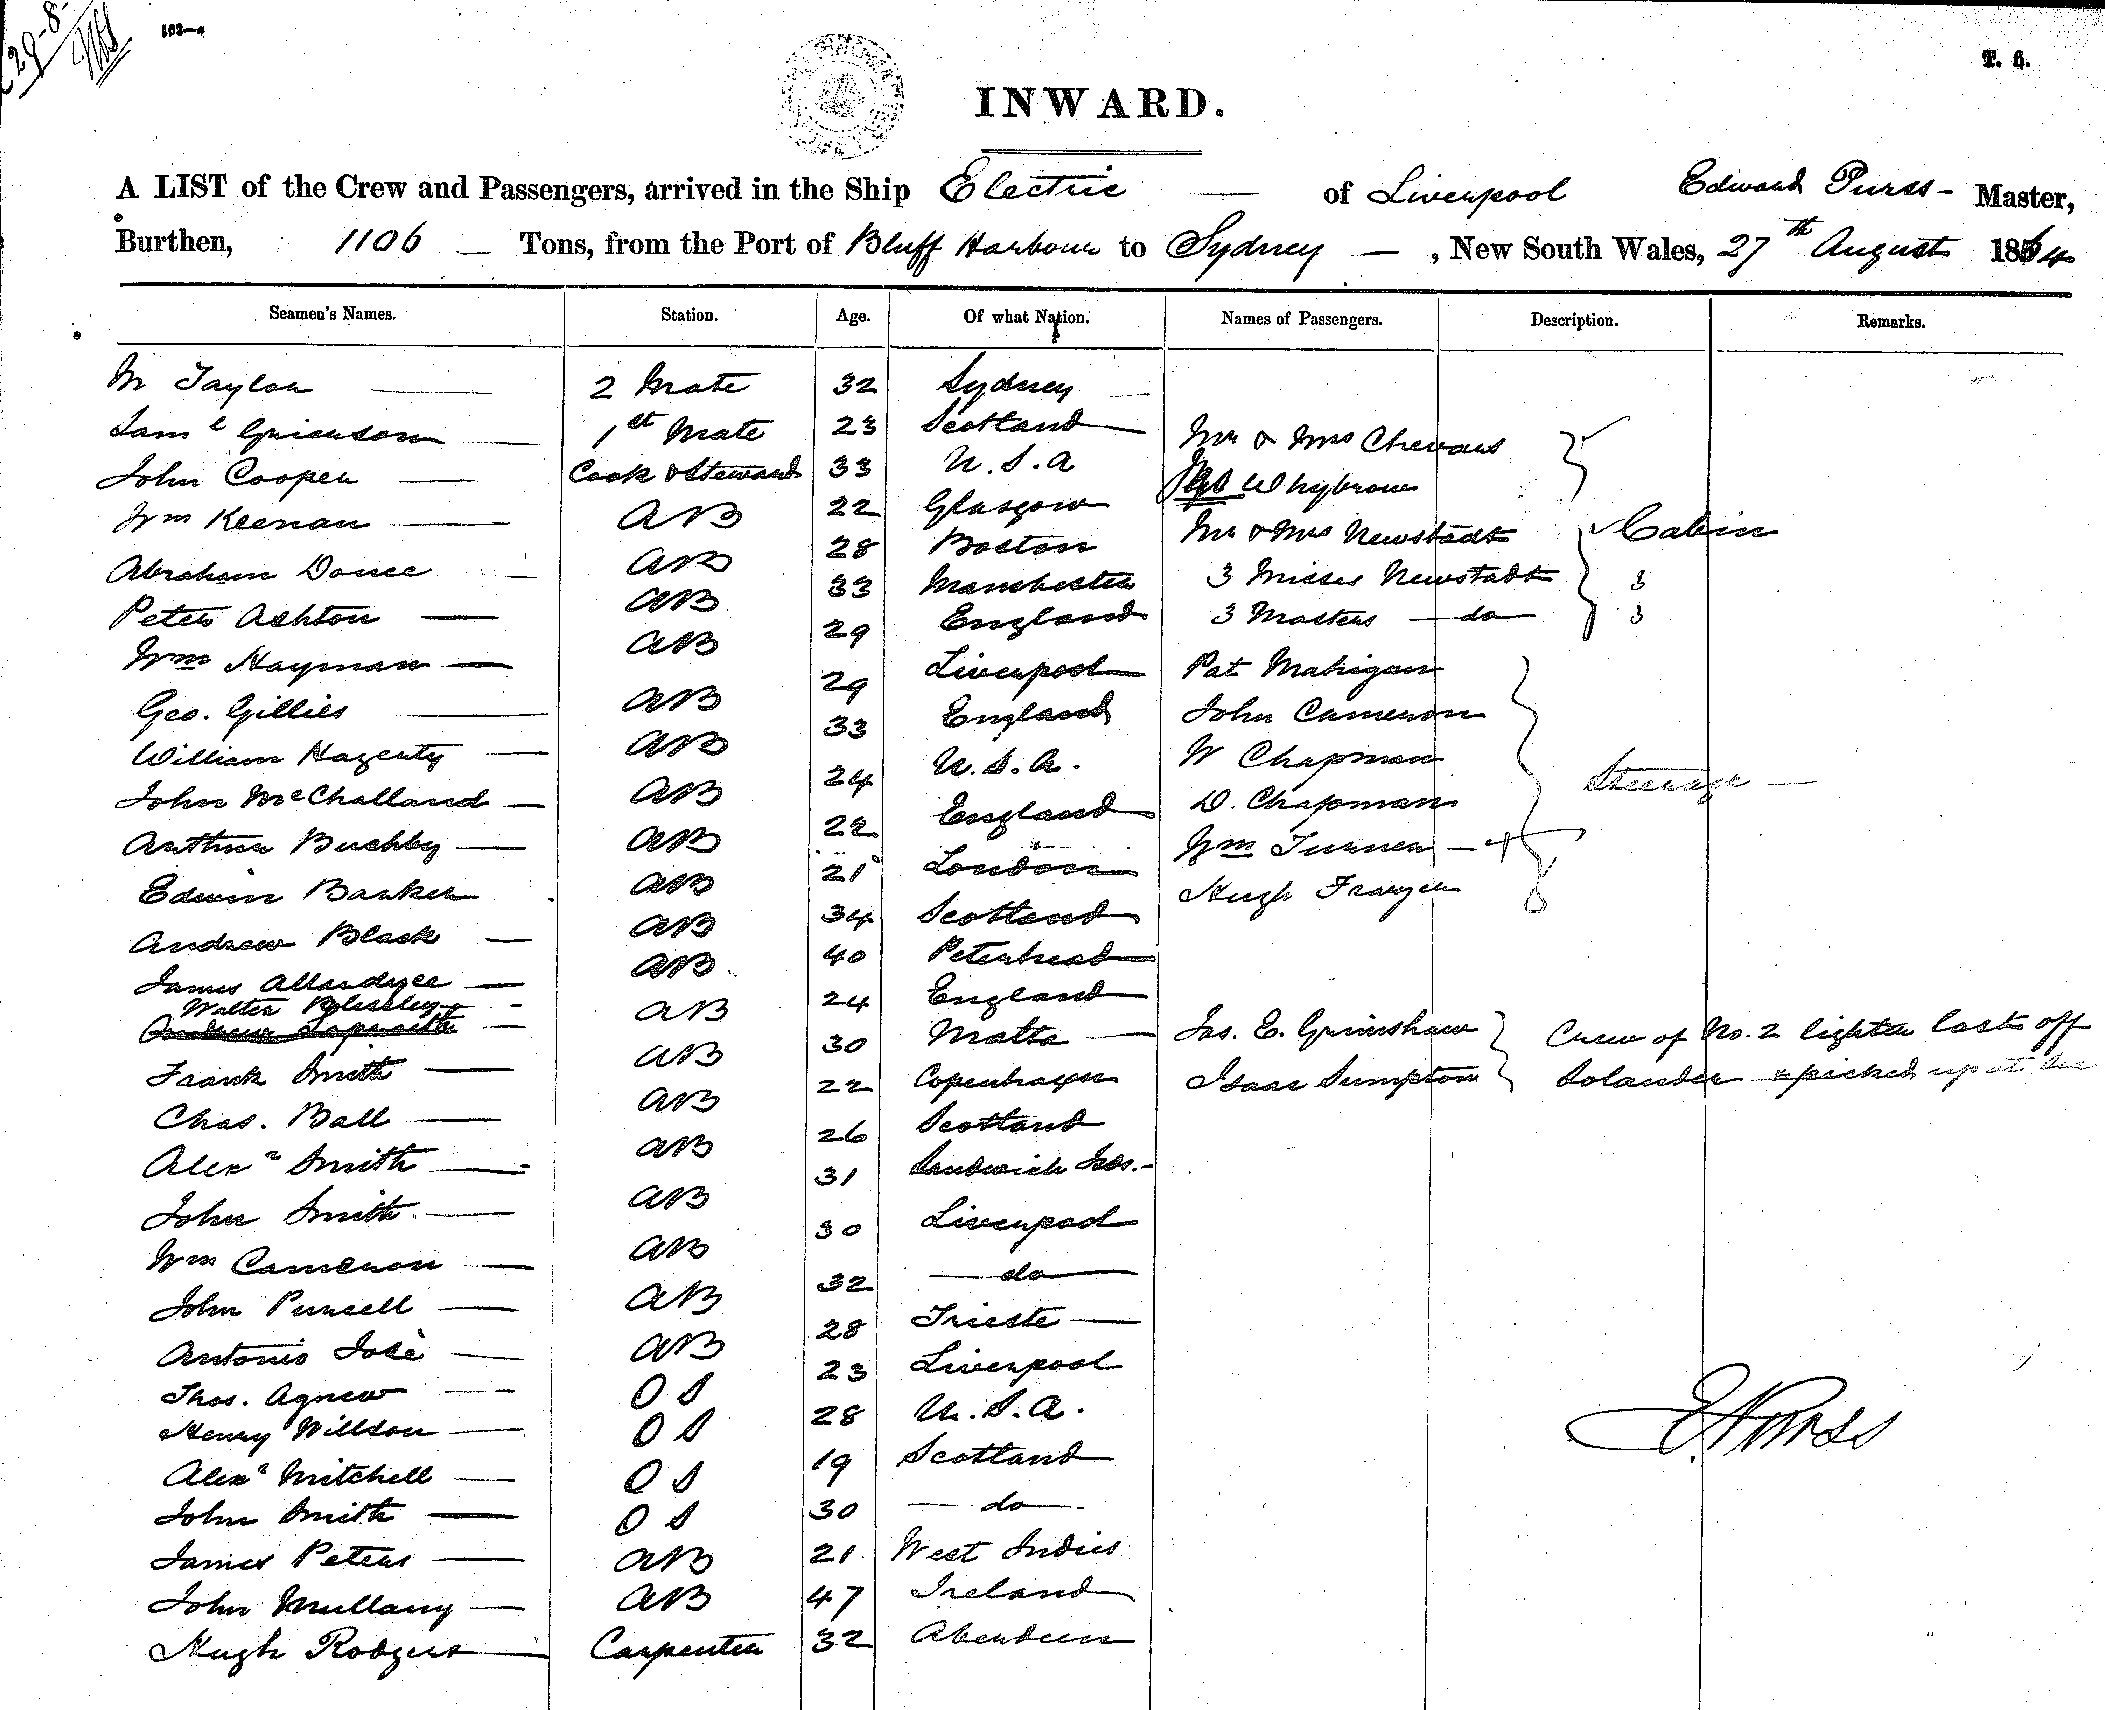 29-8-
103—a
T. 6.
INWARD.
A LIST of the Crew and Passengers, arrived in the Ship Electric — of Liverpool Edward Purss - Master,
Burthen, 1106 — Tons, from the Port of Bluff Harbour to Sydney — , New South Wales, 27th August 1864
Seamen's Names. Station. Age. Of what Nation. Names of Passengers. Description. Remarks.
M Taylor — 2 Mate 32 Sydney
Saml Grierson — 1st Mate 23 Scotland Mr & Mrs Chevans
John Cooper — Cook & Steward 33 U.S.A Whybrow
Wm Keenan — AB 22 Glasgow Mr & Mrs Newstadt Cabin
Abraham Douce — AB 28 Boston 3 Misses Newstadt 3
Peter Ashton — AB 33 Manchester 3 Masters — do — 3
Wm Hayman — AB 29 England Pat Mahigan
Geo. Gillies — AB 29 Liverpool John Cameron
William Hagerty — AB 33 England W Chapman
John McChalland — AB 24 U.S.A. D. Chapman Steerage —
Arthur Buchby — AB 22 England Wm Turner —
Edwin Barker AB 21 London Hugh Frazer
Andrew Black — AB 34 Scotland
James Allardyce — AB 40 Peterhead
Walter - AB 24 England
Frank Smith — AB 30 Malta — Jas. E. Grimshaw Crew of No. 2 lighter lost off
Chas. Ball — AB 22 Copenhagen Isaac Sumpton Solander & picked up at sea
Alexr Smith — AB 26 Scotland
John Smith — AB 31 Sandwich Isds. -
Wm Cameron — AB 30 Liverpool
John Purcell — AB 32 — do —
Antonio José — AB 28 Trieste —
Thos. Agnew — OS 23 Liverpool
Henry Willson — OS 28 U.S.A.
Alexr Mitchell — OS 19 Scotland
John Smith — OS 30 — do —
James Peters — AB 21 West Indies
John Mullany — AB 47 Ireland
Hugh Rodgers — Carpenter 32 Aberdeen
E Purss